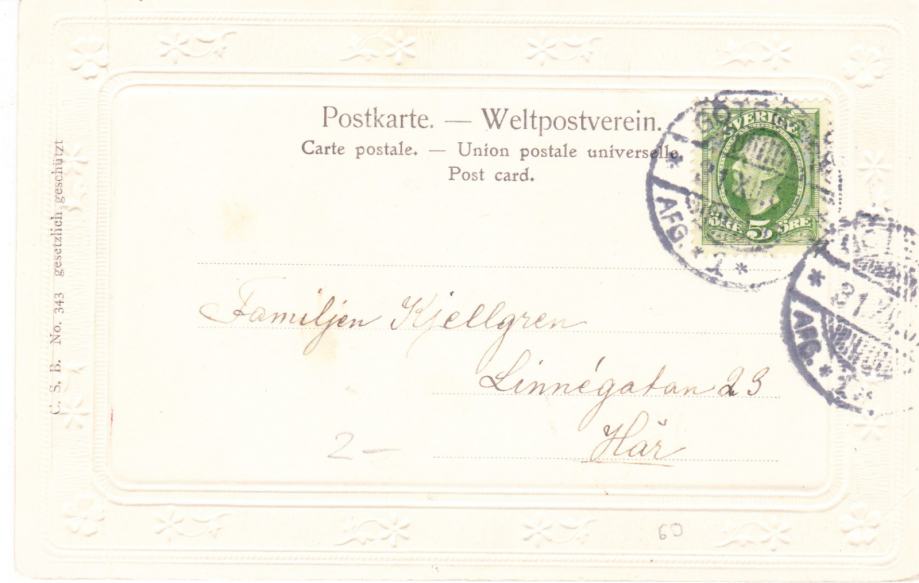 Postkarte. — Weltpostverein.
Carte postale. — Union postale universelle.
Post card.
SVERIGE
5 ÖRE
AFG. * 1 *
* 31
AFG. *
Familjen Kjellgren
Linnégatan 23
Här
2 —
60
C. S. B. No. 343 gesetzlich geschützt